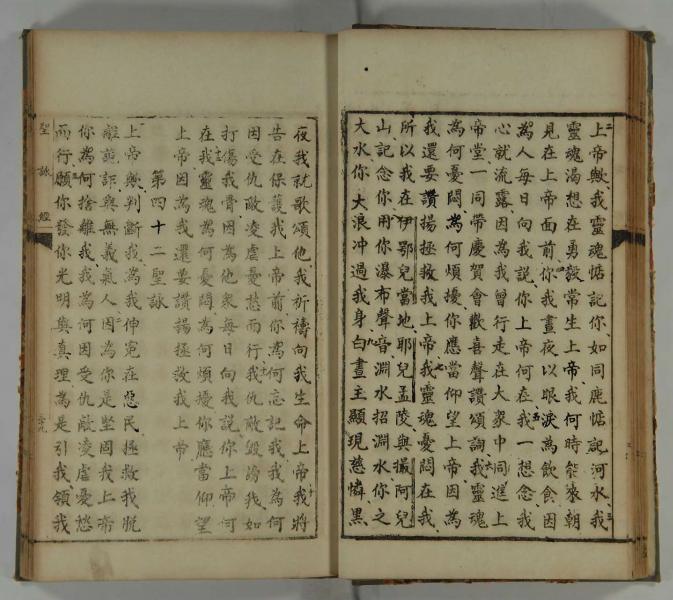 上帝歟我靈魂惦記你如同鹿惦記河水我
靈魂渴想在勇毅常生上帝我何時能來朝
見在上帝面前你我晝夜以眼淚為飲食因
為人每日向我說你上帝何在我一想念我
心就流露因為我曾行走在大衆中同進上
帝堂一同帶慶賀會歡喜聲讚頌詢我靈魂
為何憂悶為何煩擾你應當仰望上帝因為
我還要讚揚拯救我上帝我靈魂憂悶在我
所以我在伊鄂兒當地耶兒孟陵與撮阿兒
山記念你用你瀑布聲音淵水招淵水你之
大水你大浪冲過我身白晝主顯現慈憐黑
夜我就歌頌他我祈禱向我生命上帝我將
告在保護我上帝前你為何忘記我我為何
因受仇敵凌虐憂愁而行我仇敵毀謗我如
打傷我骨因為他衆每日向我說你上帝何
在我靈魂為何憂悶為何煩擾你應當仰望
上帝因為我還要讚揚拯救我上帝
第四十二聖詠
上帝歟判斷我為我伸冤在惡民拯救我脫
離詭詐與無義氣人因為你是堅固我上帝
你為何捨離我我為何因受仇敵凌虐憂愁
而行願你發你光明與真理為是引我領我
聖詠經